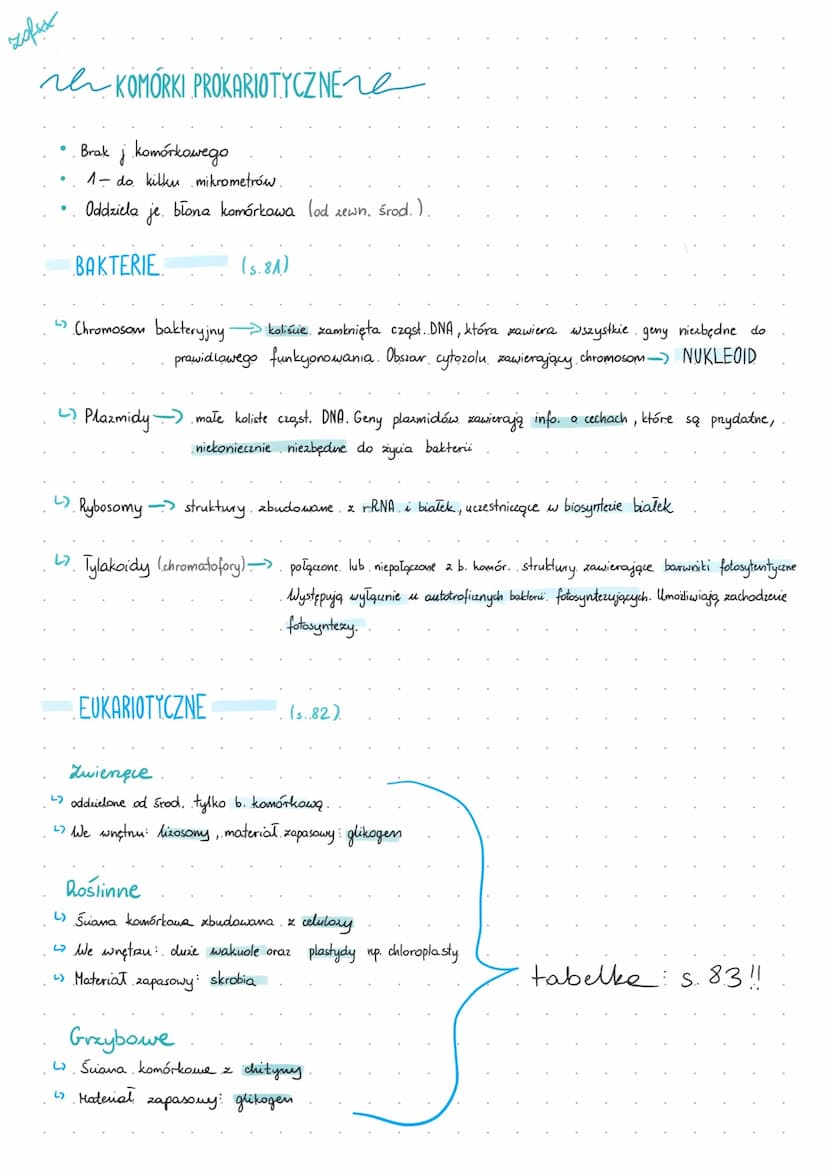 zofsx
KOMÓRKI PROKARIOTYCZNE
• Brak j komórkowego
• 1 - do kilku mikrometrów
• Oddziela je błona komórkowa (od zewn. środ.).
BAKTERIE (s.81)
↳ Chromosom bakteryjny → koliście zamknięta cząst. DNA, która zawiera wszystkie geny niezbędne do
prawidłowego funkcjonowania. Obszar cytozolu zawierający chromosom → NUKLEOID
↳ Plazmidy → małe koliste cząst. DNA. Geny plazmidów zawierają info. o cechach, które są przydatne,
niekoniecznie niezbędne do życia bakterii
↳ Rybosomy → struktury zbudowane z rRNA i białek, uczestniczące w biosyntezie białek
↳ Tylakoidy (chromatofory) → połączone lub niepołączone z b. komór. struktury zawierające barwniki fotosytentyczne
Występują wyłącznie u autotroficznych bakterii fotosyntezujących. Umożliwiają zachodzenie
fotosyntezy.
EUKARIOTYCZNE (s.82)
Zwierzęce
↳ oddzielone od środ. tylko b. komórkową.
↳ We wnętrzu: lizosomy, materiał zapasowy: glikogen
Roślinne
↳ Ściana komórkowa zbudowana z celulozy
↳ We wnętrzu: duże wakuole oraz plastydy np. chloroplasty
↳ Materiał zapasowy: skrobia
tabelka: s. 83!!
Grzybowe
↳ Ściana komórkowa z chityny
↳ Materiał zapasowy: glikogen